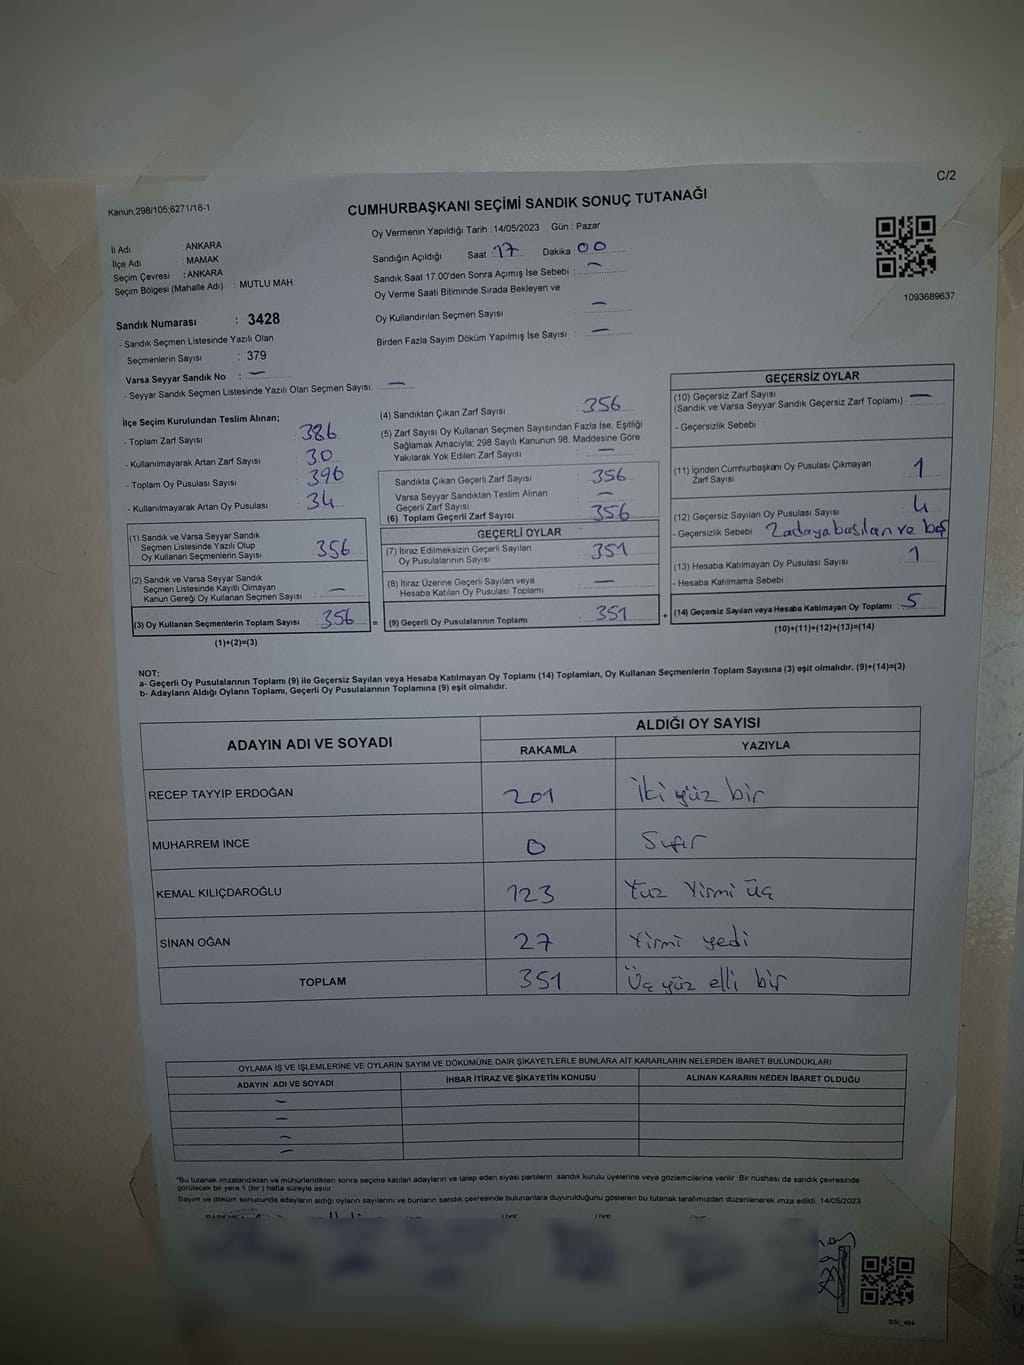 C/2
Kanun;298/105;6271/18-1
CUMHURBAŞKANI SEÇİMİ SANDIK SONUÇ TUTANAĞI
Oy Vermenin Yapıldığı Tarih : 14/05/2023 Gün : Pazar
İl Adı : ANKARA
İlçe Adı : MAMAK
Seçim Çevresi : ANKARA
Seçim Bölgesi (Mahalle Adı) : MUTLU MAH.
Sandığın Açıldığı Saat : 17 Dakika 00
Sandık Saat 17.00'den Sonra Açımış İse Sebebi : —
Oy Verme Saati Bitiminde Sırada Bekleyen ve
Oy Kullandırılan Seçmen Sayısı : —
Birden Fazla Sayım Döküm Yapılmış İse Sayısı : —
1093689637
Sandık Numarası : 3428
- Sandık Seçmen Listesinde Yazılı Olan
Seçmenlerin Sayısı : 379
Varsa Seyyar Sandık No : —
- Seyyar Sandık Seçmen Listesinde Yazılı Olan Seçmen Sayısı: —
İlçe Seçim Kurulundan Teslim Alınan;
- Toplam Zarf Sayısı : 386
- Kullanılmayarak Artan Zarf Sayısı : 30
- Toplam Oy Pusulası Sayısı : 390
- Kullanılmayarak Artan Oy Pusulası : 34
(1) Sandık ve Varsa Seyyar Sandık
Seçmen Listesinde Yazılı Olup
Oy Kullanan Seçmenlerin Sayısı : 356
(2) Sandık ve Varsa Seyyar Sandık
Seçmen Listesinde Kayıtlı Olmayan
Kanun Gereği Oy Kullanan Seçmen Sayısı : —
(3) Oy Kullanan Seçmenlerin Toplam Sayısı : 356 =
(1)+(2)=(3)
(4) Sandıktan Çıkan Zarf Sayısı : 356
(5) Zarf Sayısı Oy Kullanan Seçmen Sayısından Fazla İse, Eşitliği
Sağlamak Amacıyla; 298 Sayılı Kanunun 98. Maddesine Göre
Yakılarak Yok Edilen Zarf Sayısı : —
Sandıkta Çıkan Geçerli Zarf Sayısı : 356
Varsa Seyyar Sandıktan Teslim Alınan
Geçerli Zarf Sayısı : —
(6) Toplam Geçerli Zarf Sayısı : 356
GEÇERLİ OYLAR
(7) İtiraz Edilmeksizin Geçerli Sayılan
Oy Pusulalarının Sayısı : 351
(8) İtiraz Üzerine Geçerli Sayılan veya
Hesaba Katılan Oy Pusulası Toplamı : —
(9) Geçerli Oy Pusulalarının Toplamı : 351 +
GEÇERSİZ OYLAR
(10) Geçersiz Zarf Sayısı
(Sandık ve Varsa Seyyar Sandık Geçersiz Zarf Toplamı) : —
- Geçersizlik Sebebi :
(11) İçinden Cumhurbaşkanı Oy Pusulası Çıkmayan
Zarf Sayısı : 1
(12) Geçersiz Sayılan Oy Pusulası Sayısı : 4
- Geçersizlik Sebebi : 2 adaya basılan ve boş
(13) Hesaba Katılmayan Oy Pusulası Sayısı : 1
- Hesaba Katılmama Sebebi :
(14) Geçersiz Sayılan veya Hesaba Katılmayan Oy Toplamı : 5
(10)+(11)+(12)+(13)=(14)
NOT:
a- Geçerli Oy Pusulalarının Toplamı (9) ile Geçersiz Sayılan veya Hesaba Katılmayan Oy Toplamı (14) Toplamları, Oy Kullanan Seçmenlerin Toplam Sayısına (3) eşit olmalıdır. (9)+(14)=(3)
b- Adayların Aldığı Oyların Toplamı, Geçerli Oy Pusulalarının Toplamına (9) eşit olmalıdır.
ADAYIN ADI VE SOYADI
ALDIĞI OY SAYISI
RAKAMLA YAZIYLA
RECEP TAYYİP ERDOĞAN 201 İki yüz bir
MUHARREM İNCE 0 Sıfır
KEMAL KILIÇDAROĞLU 123 Yüz Yirmi üç
SİNAN OĞAN 27 Yirmi yedi
TOPLAM 351 Üç yüz elli bir
OYLAMA İŞ VE İŞLEMLERİNE VE OYLARIN SAYIM VE DÖKÜMÜNE DAİR ŞİKAYETLERLE BUNLARA AİT KARARLARIN NELERDEN İBARET BULUNDUKLARI
ADAYIN ADI VE SOYADI İHBAR İTİRAZ VE ŞİKAYETİN KONUSU ALINAN KARARIN NEDEN İBARET OLDUĞU
—
—
—
—
*Bu tutanak imzalandıktan ve mühürlendikten sonra seçime katılan adayların ve talep eden siyasi partilerin sandık kurulu üyelerine veya gözlemcilerine verilir. Bir nüshası da sandık çevresinde
görülecek bir yere 1 (bir ) hafta süreyle asılır.
Sayım ve döküm sonucunda adayların aldığı oyların sayılarını ve bunların sandık çevresinde bulunanlara duyurulduğunu gösteren bu tutanak tarafımızdan düzenlenerek imza edildi. 14/05/2023
BAŞKAN ÜYE ÜYE ÜYE